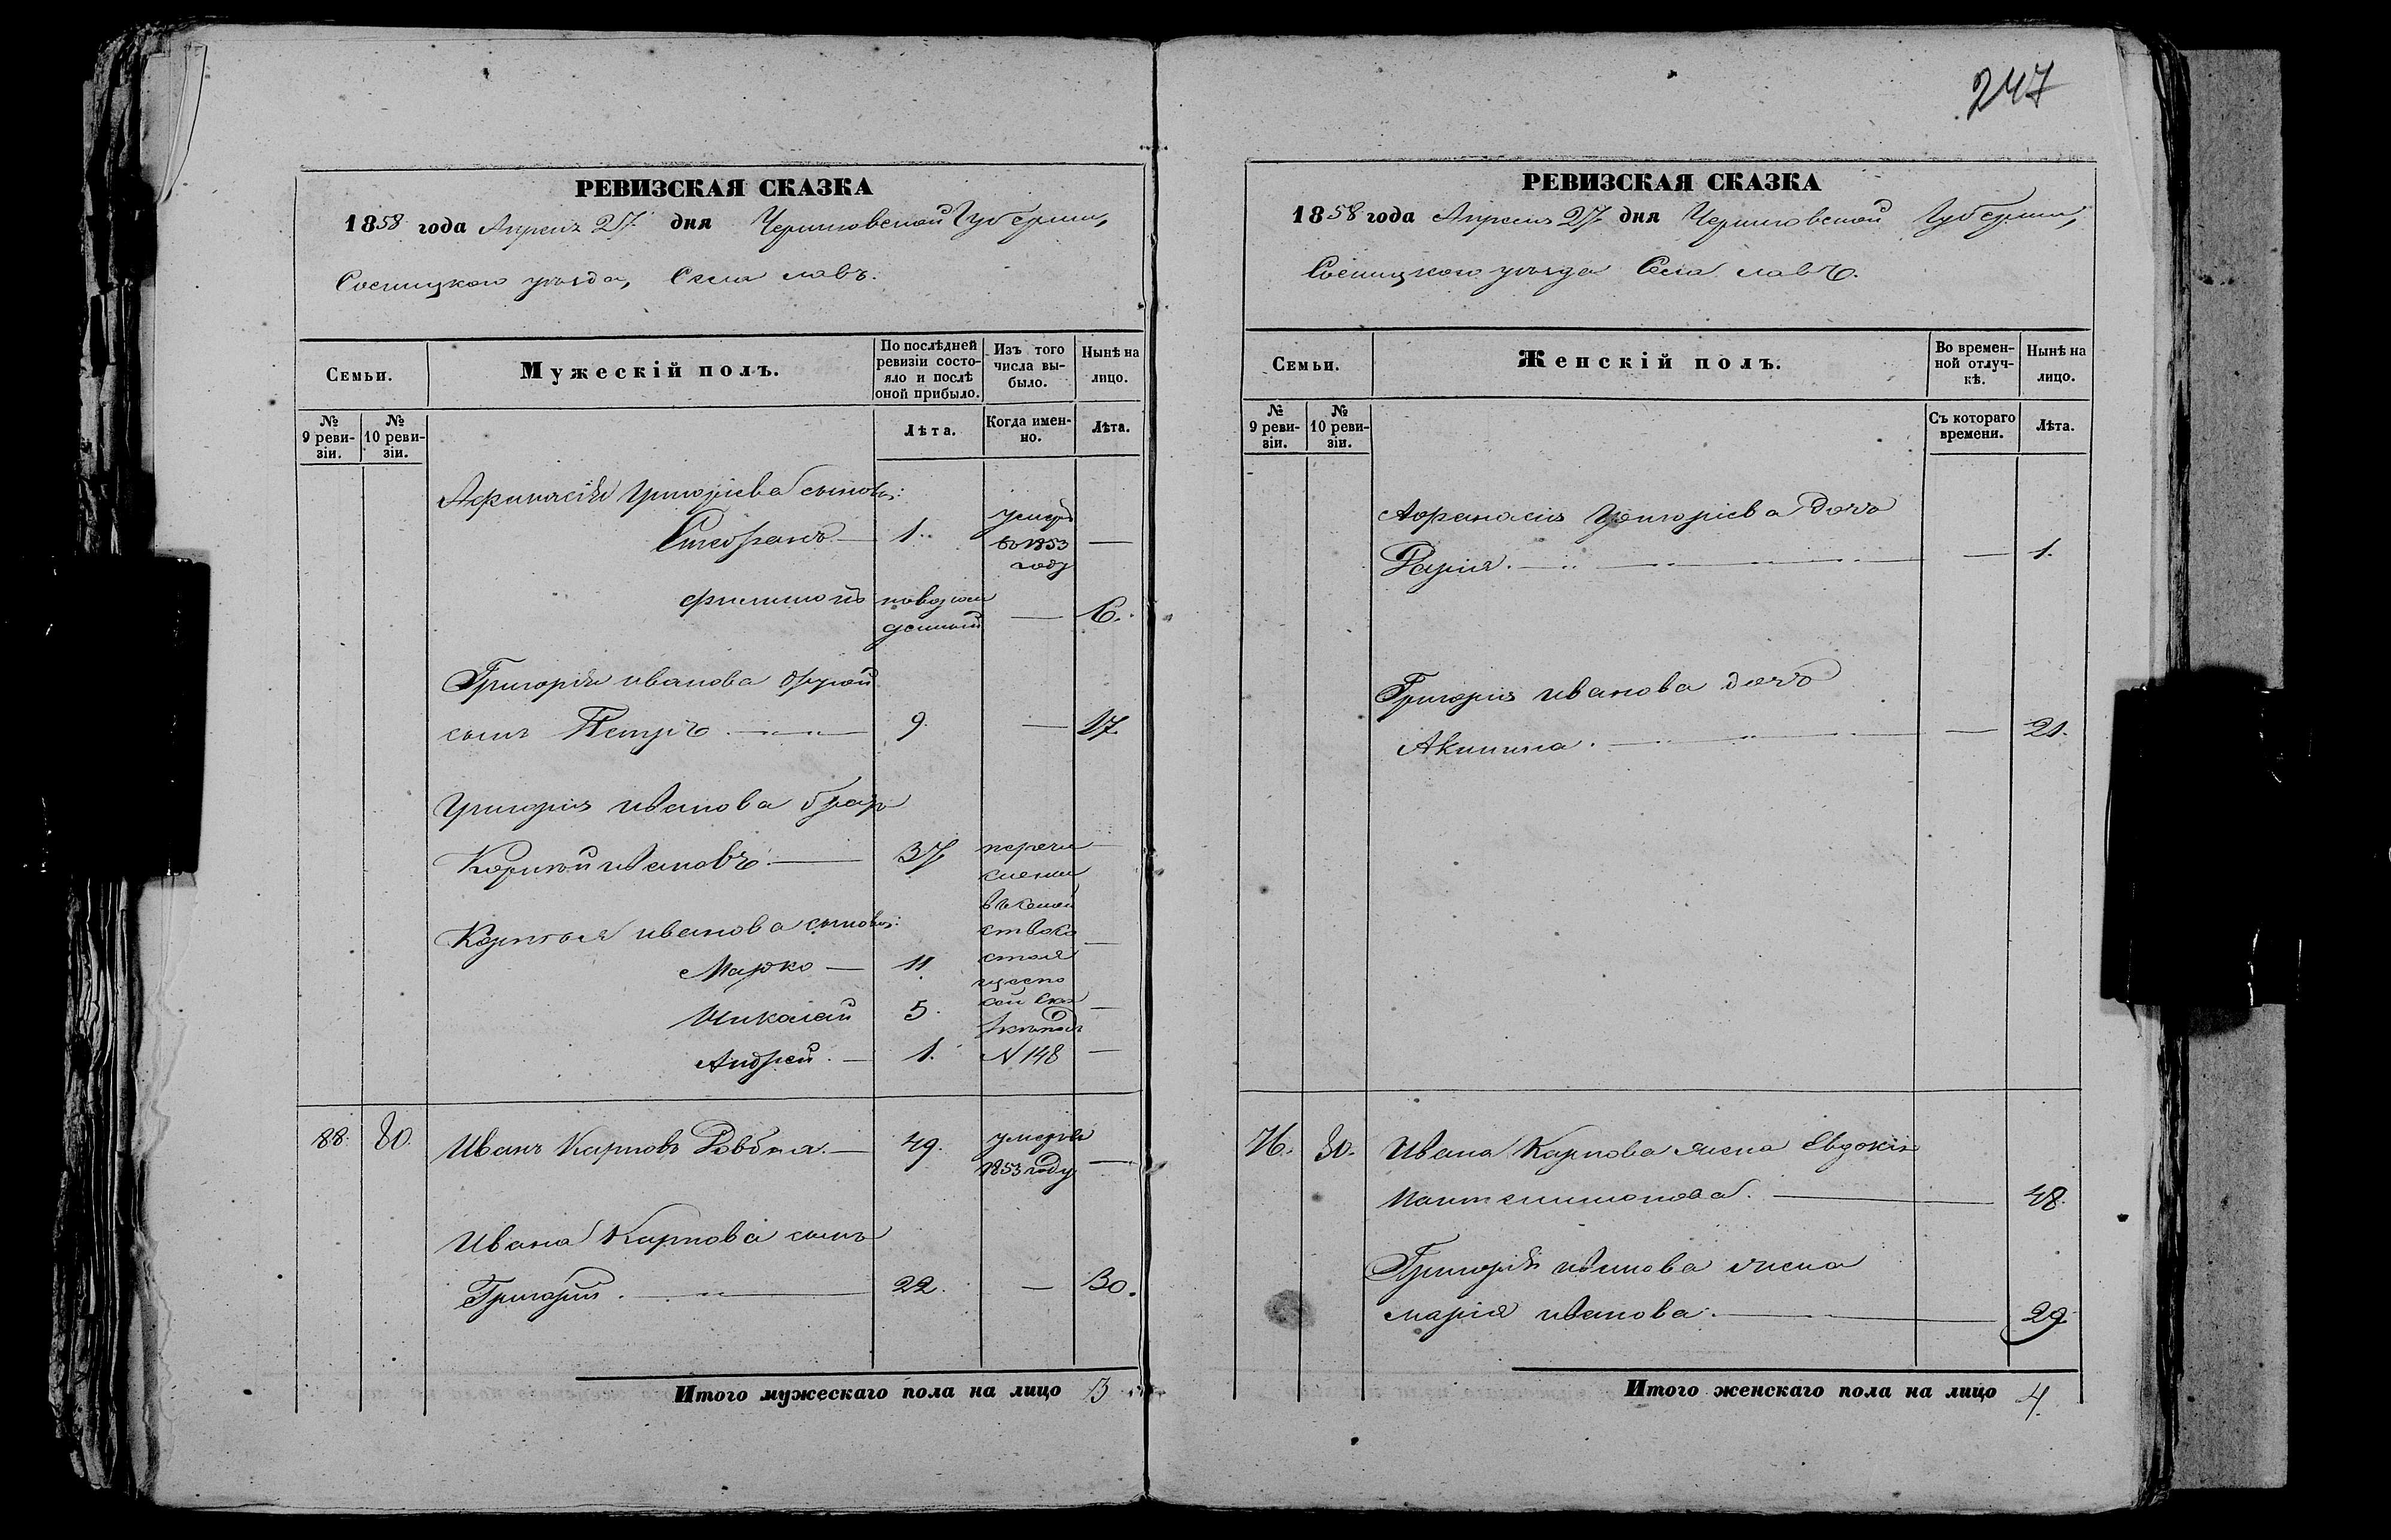 247
РЕВИЗСКАЯ СКАЗКА
1858 года Апреля 27 дня Черниговской Губернии,
Сосницкого уезда, Села Лавъ.
Семьи.
Мужескій полъ.
По послѣдней ревизіи состо-
яло и послѣ
оной прибыло.
Изъ того
числа вы-
было.
Нынѣ на
лицо.
№
9 реви-
зіи.
№
10 реви-
зіи.
Лѣта.
Когда имен-
но.
Лѣта.
Афанасія Григоріева сыновья:
Стефанъ — 1. умеръ
въ 1853 —
году
Филимонъ новорож
денный — 6.
Григорія Иванова другой
сынъ Петръ. — 9. — 17.
Григорія Иванова братъ
Корнѣй Ивановъ. — 37 перечи
слены
Корнѣя Иванова сыновья:
Марко — 11.
Николай 5.
Андрей. — 1. N 148 —
88. 80. Иванъ Карповъ Ровбня. — 49. умеръ
1853 году —
Ивана Карпова сынъ
Григорій. — 22. — 30.
Итого мужескаго пола на лицо 3
РЕВИЗСКАЯ СКАЗКА
1858 года Апреля 27 дня Черниговской Губернии,
Сосницкого уезда Села Лавъ.
Семьи.
Женскій полъ.
Во времен-
ной отлуч-
кѣ.
Нынѣ на
лицо.
№
9 реви-
зіи.
№
10 реви-
зіи.
Съ котораго
времени.
Лѣта.
Афанасія Григоріева дочь
Дарія. — — 1.
Григорія Иванова дочь
Акилина. — — 21.
76. 80. Ивана Карпова жена Евдокія
Пантелимонова. — 48.
Григорія Иванова жена
Марія Иванова. — 29
Итого женскаго пола на лицо 4.